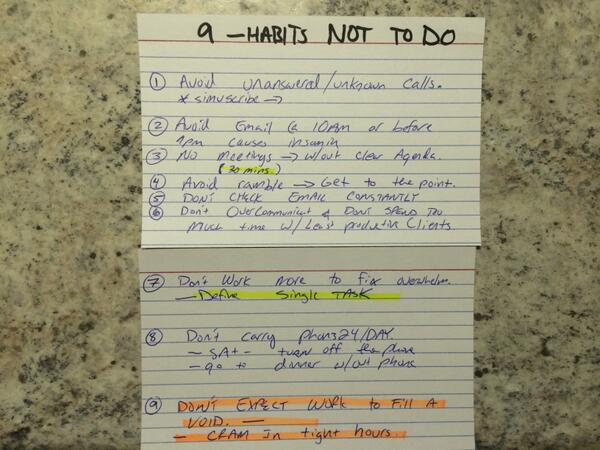 9 - HABITS NOT TO DO
① Avoid unanswered/unknown calls.
* simuscribe →
② Avoid Email @ 10pm or before
1pm causes insomnia
③ No meetings → w/out clear Agenda.
(30 mins.)
④ Avoid ramble → Get to the point.
⑤ DON'T CHECK EMAIL CONSTANTLY
⑥ Don't OverCommunicate & DON'T SPEND TOO
much time w/ Least productive Clients.
⑦ Don't Work more to fix overwhelm.
- Define Single TASK
⑧ Don't carry phone 24/DAY.
- SAT - turn off the phone
- go to dinner w/out phone
⑨ DON'T EXPECT WORK to Fill A
VOID. -
- CRAM In tight hours.